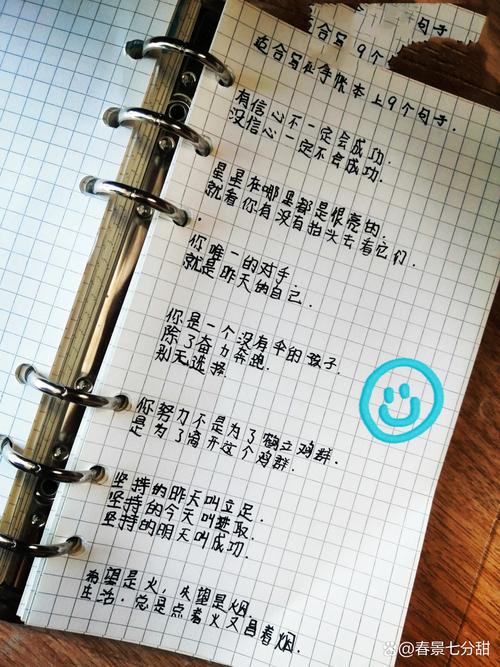 合写 9个
句子
适合写在手帐本上9个句子.
有信心不一定会成功.
没信心一定不会成功.
星星在哪里都是很亮的.
就看你有没有抬头去看它们.
你唯一的对手.
就是昨天的自己.
你是一个没有伞的孩子.
除了奋力奔跑.
别无选择.
你努力不是为了鹤立鸡群.
是为了离开这个鸡群.
坚持的昨天叫立足.
坚持的今天叫进取.
坚持的明天叫成功.
希望是火，失望是烟.
生活.总是点着火又冒着烟.
@春景七分甜